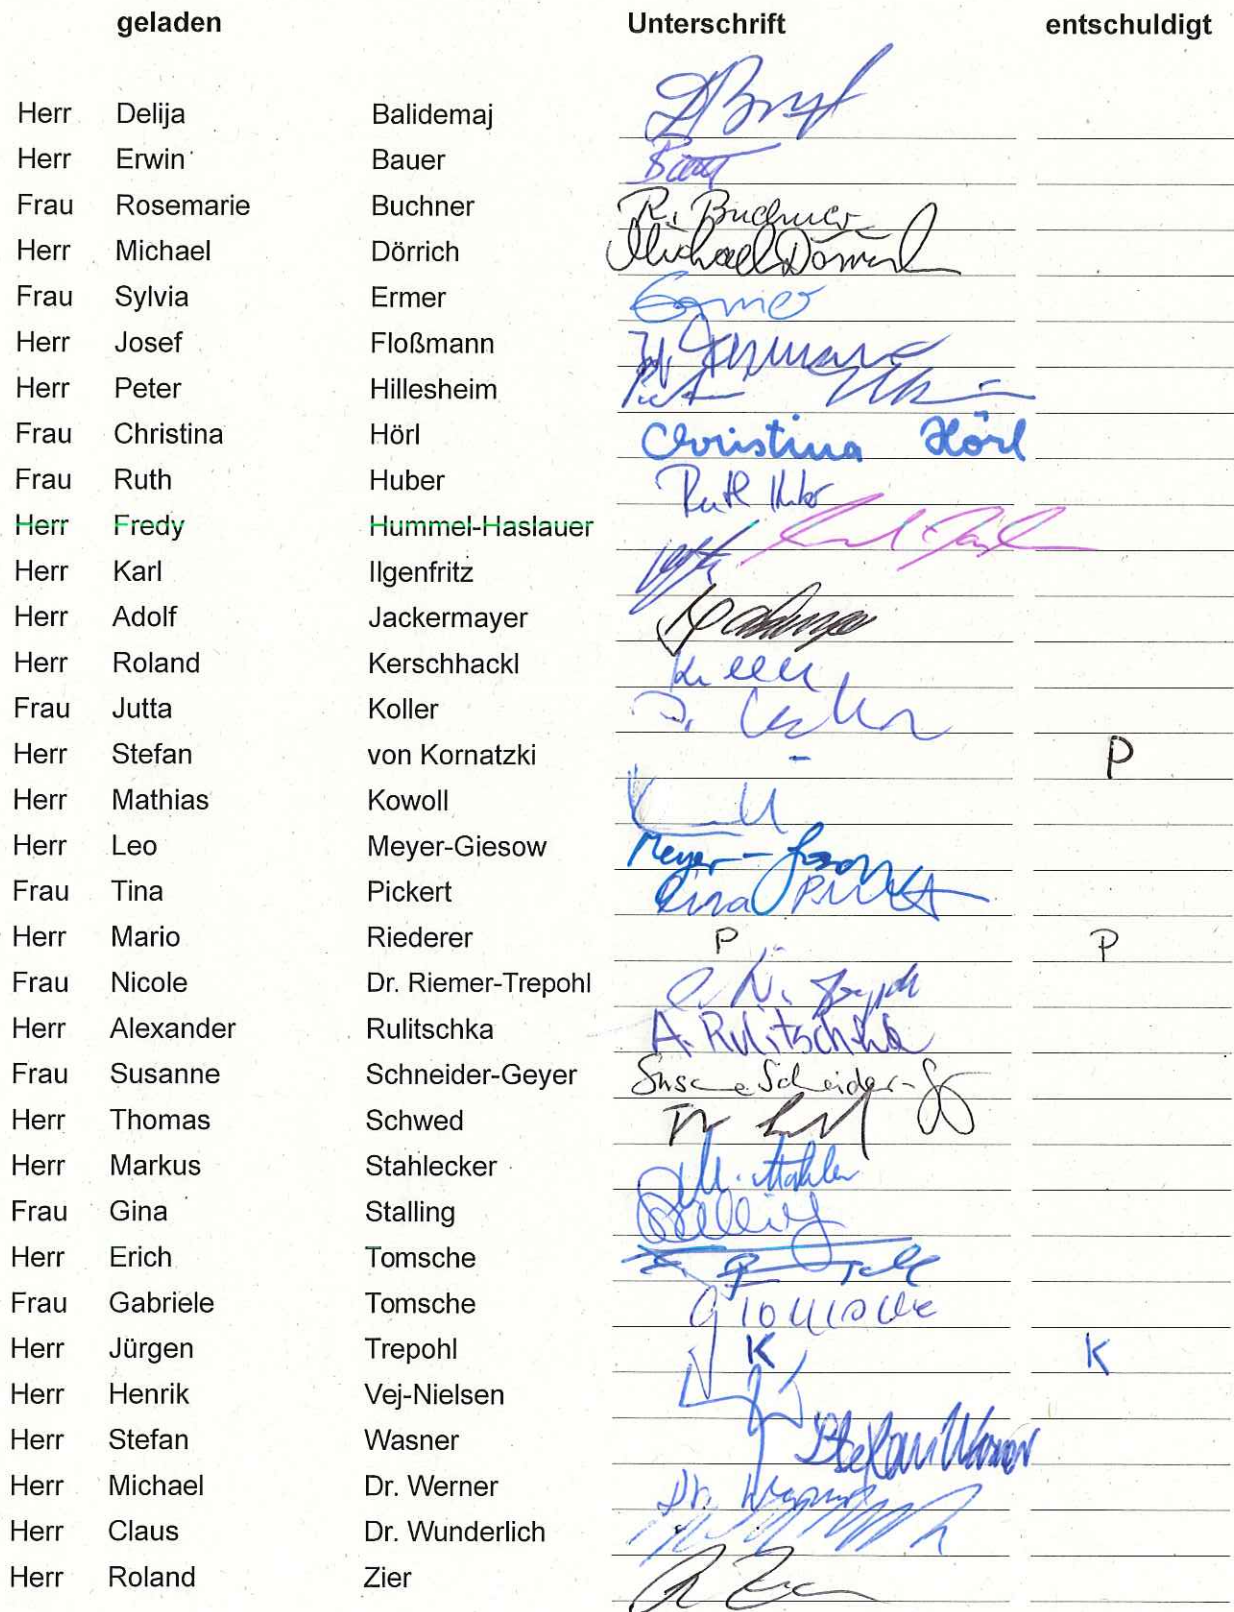 geladen Unterschrift entschuldigt
Herr Delija Balidemaj
Herr Erwin Bauer
Frau Rosemarie Buchner R. Buchner
Herr Michael Dörrich Michael Dörrich
Frau Sylvia Ermer Ermer
Herr Josef Floßmann
Herr Peter Hillesheim
Frau Christina Hörl Christina Hörl
Frau Ruth Huber Ruth Huber
Herr Fredy Hummel-Haslauer
Herr Karl Ilgenfritz
Herr Adolf Jackermayer
Herr Roland Kerschhackl
Frau Jutta Koller J. Koller
Herr Stefan von Kornatzki - P
Herr Mathias Kowoll
Herr Leo Meyer-Giesow Meyer-Giesow
Frau Tina Pickert Tina Pickert
Herr Mario Riederer P P
Frau Nicole Dr. Riemer-Trepohl
Herr Alexander Rulitschka A. Rulitschka
Frau Susanne Schneider-Geyer Susanne Schneider-
Herr Thomas Schwed
Herr Markus Stahlecker
Frau Gina Stalling Stalling
Herr Erich Tomsche
Frau Gabriele Tomsche G Tomsche
Herr Jürgen Trepohl K K
Herr Henrik Vej-Nielsen
Herr Stefan Wasner Stefan Wasner
Herr Michael Dr. Werner Dr. Werner
Herr Claus Dr. Wunderlich
Herr Roland Zier R. Zier